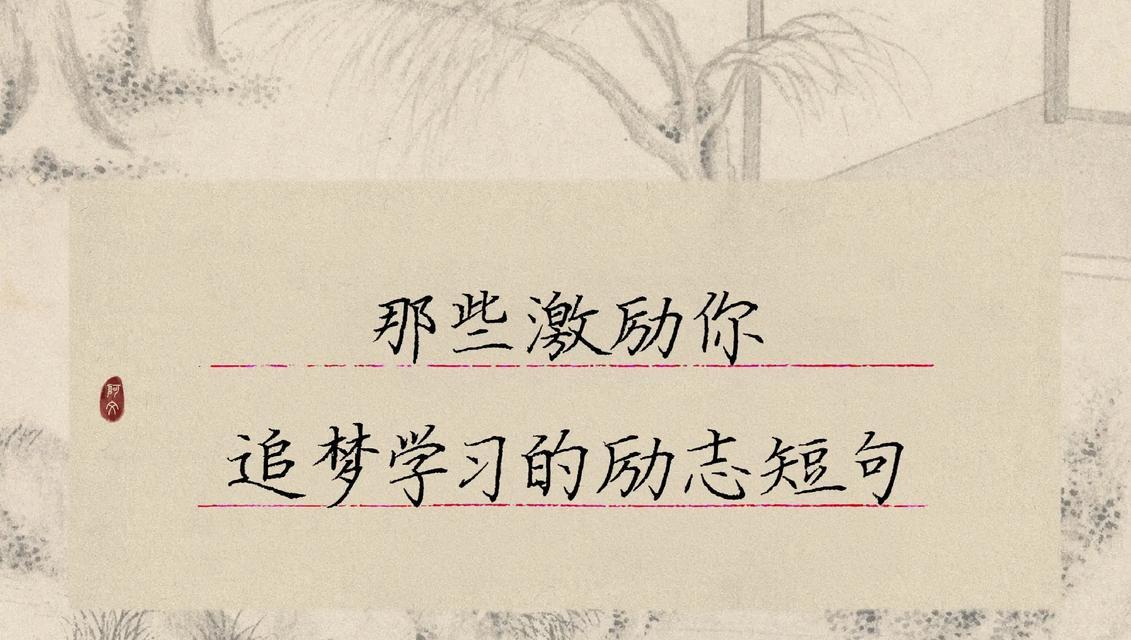 那些激励你
追梦学习的励志短句
阿文